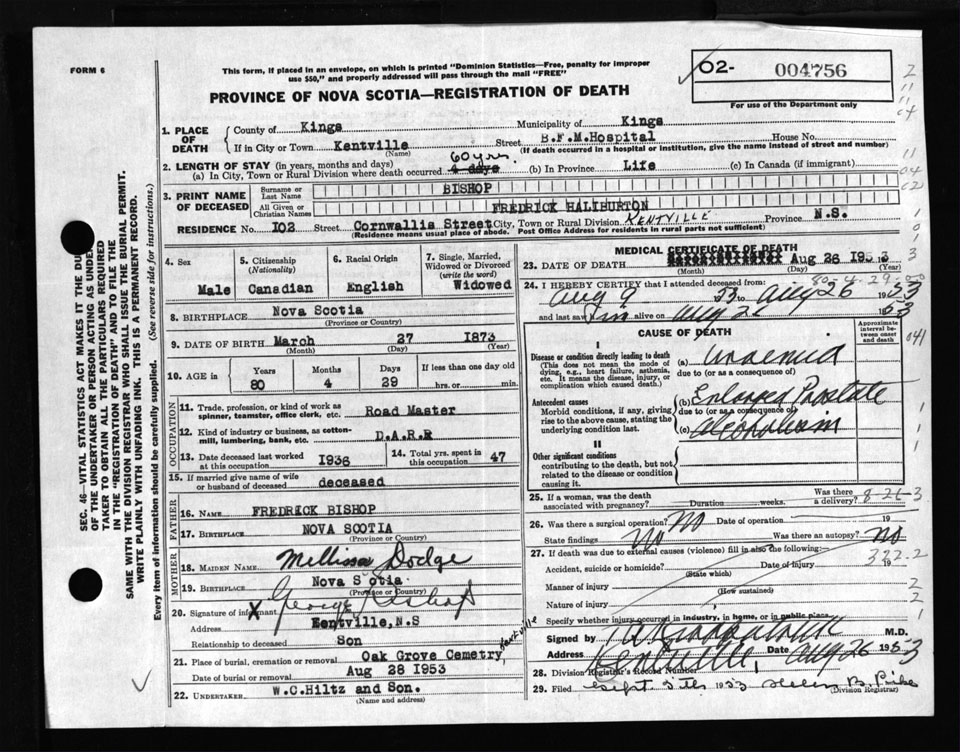 FORM 6
This form, if placed in an envelope, on which is printed "Dominion Statistics—Free, penalty for improper
use $50," and properly addressed will pass through the mail "FREE"
PROVINCE OF NOVA SCOTIA—REGISTRATION OF DEATH
O2- 004756
For use of the Department only
1. PLACE OF DEATH
County of Kings Municipality of Kings
If in City or Town Kentville Street B.F.M.Hospital House No.
(Name) (If death occurred in a hospital or institution, give the name instead of street and number)
2. LENGTH OF STAY (in years, months and days)
60 yrs.
(a) In City, Town or Rural Division where death occurred 4 days (b) In Province Life (c) In Canada (if immigrant)
3. PRINT NAME OF DECEASED
Surname or Last Name BISHOP
All Given or Christian Names FREDRICK HALIBURTON
RESIDENCE No. I02 Street Cornwallis Street City, Town or Rural Division KENTVILLE Province N.S.
(Residence means usual place of abode. Post Office Address for residents in rural parts not sufficient)
4. Sex
Male
5. Citizenship
(Nationality)
Canadian
6. Racial Origin
English
7. Single, Married,
Widowed or Divorced
(write the word)
Widowed
8. BIRTHPLACE Nova Scotia
(Province or Country)
9. DATE OF BIRTH March 27 1873
(Month) (Day) (Year)
10. AGE in
Years Months Days If less than one day old
80 4 29 hrs. or min.
OCCUPATION
11. Trade, profession, or kind of work as
spinner, teamster, office clerk, etc. Road Master
12. Kind of industry or business, as cotton-
mill, lumbering, bank, etc. D.A.R.R
13. Date deceased last worked
at this occupation I936
14. Total yrs. spent in
this occupation 47
15. If married give name of wife
or husband of deceased deceased
FATHER
16. NAME FREDRICK BISHOP
17. BIRTHPLACE NOVA SCOTIA
(Province or Country)
MOTHER
18. MAIDEN NAME Mellissa Dodge
19. BIRTHPLACE Nova S otia
(Province or Country)
20. Signature of informant X George Bishop
Address Kentville, N.S
Relationship to deceased Son
21. Place of burial, cremation or removal Oak Grove Cemetry, Kentville
Date of burial or removal Aug 28 I953
22. UNDERTAKER W.C.Hiltz and Son.
(Name and address)
MEDICAL CERTIFICATE OF DEATH
23. DATE OF DEATH Aug 26 195 3
(Month) (Day) (Year)
80-4-29
24. I HEREBY CERTIFY that I attended deceased from:
Aug 9 53 to Aug 26 1953
and last saw him alive on Aug 26 1953
CAUSE OF DEATH
Approximate
interval between
onset
and death
I
Disease or condition directly leading to death
(This does not mean the mode of
dying, e.g., heart failure, asthenia,
etc. It means the disease, injury, or
complication which caused death.)
(a) Uraemia
due to (or as a consequence of)
Antecedent causes
Morbid conditions, if any, giving
rise to the above cause, stating the
underlying condition last.
(b) Enlarged Prostate
due to (or as a consequence of)
(c) alcoholism
II
Other significant conditions
contributing to the death, but not
related to the disease or
condition causing it.
25. If a woman, was the death
associated with pregnancy? Duration weeks. Was there
a delivery?
8-26-3
26. Was there a surgical operation? No Date of operation 19
State findings No Was there an autopsy? No
27. If death was due to external causes (violence) fill in also the following:
322.2
Accident, suicide or homicide? Date of Injury 19
(State which)
Manner of injury
(How sustained)
Nature of injury
Specify whether injury occurred in industry, in home, or in public place
Signed by M.D.
Address Kentville, Date Aug 26 1953
28. Division Registrar's Record Number
29. Filed Sept. 5th 1953 Helen B. Pike
(Division Registrar)
SEC. 46—VITAL STATISTICS ACT MAKES IT THE DU
OF THE UNDERTAKER OR PERSON ACTING AS UNDER
TAKER TO OBTAIN ALL THE PARTICULARS REQUIRED
IN THE "REGISTRATION OF DEATH" AND TO FILE THE
SAME WITH THE DIVISION REGISTRAR WHO SHALL ISSUE THE BURIAL PERMIT.
WRITE PLAINLY WITH UNFADING INK. THIS IS A PERMANENT RECORD.
Every item of information should be carefully supplied. (See reverse side for instructions.)